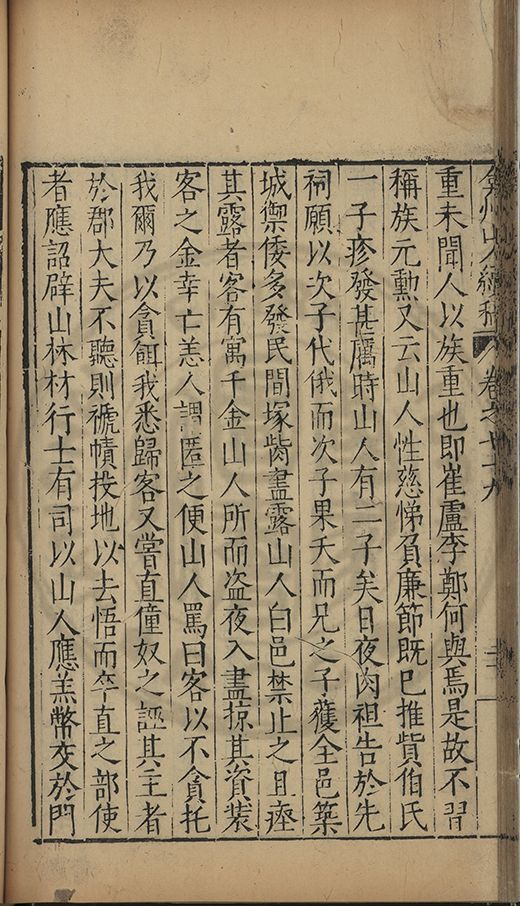 弇州山人續稿 卷之七十九
重未聞人以族重也即崔盧李鄭何與焉是故不習
稱族元勳又云山人性慈悌負廉節既已推貲伯氏
一子疹發甚厲時山人有二子矣日夜肉袒告於先
祠願以次子代俄而次子果夭而兄之子獲全邑築
城禦倭多發民間塚胔盡露山人白邑禁止之且瘞
其露者客有寓千金山人所而盗夜入盡掠其資裝
客之金幸亡恙人謂匿之便山人罵曰客以不貪托
我爾乃以貪餌我悉歸客又嘗直僮奴之誣其主者
於郡大夫不聽則褫幘投地以去悟而卒直之部使
者應詔辟山林材行士有司以山人應羔幣交於門